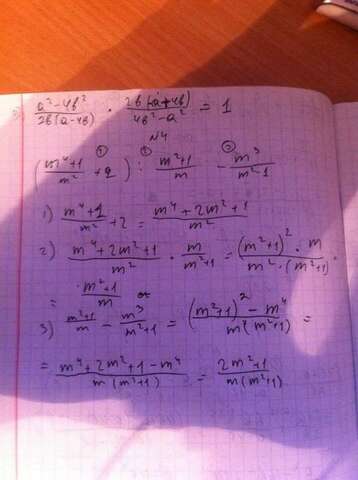 (a²-4b²)/(2b(a-4b)) · (2b(a+4b))/(4b²-a²) = 1
N4
((m⁴+1)/m² + 2) : (m²+1)/m - m³/(m²-1)
1) (m⁴+1)/m² + 2 = (m⁴+2m²+1)/m²
2) (m⁴+2m²+1)/m² · m/(m²+1) = ((m²+1)² · m)/(m² · (m²+1))
= (m²+1)/m
3) (m²+1)/m - m³/(m²+1) = ((m²+1)² - m⁴)/(m(m²+1)) =
= (m⁴+2m²+1-m⁴)/(m(m²+1)) = (2m²+1)/(m(m²+1))